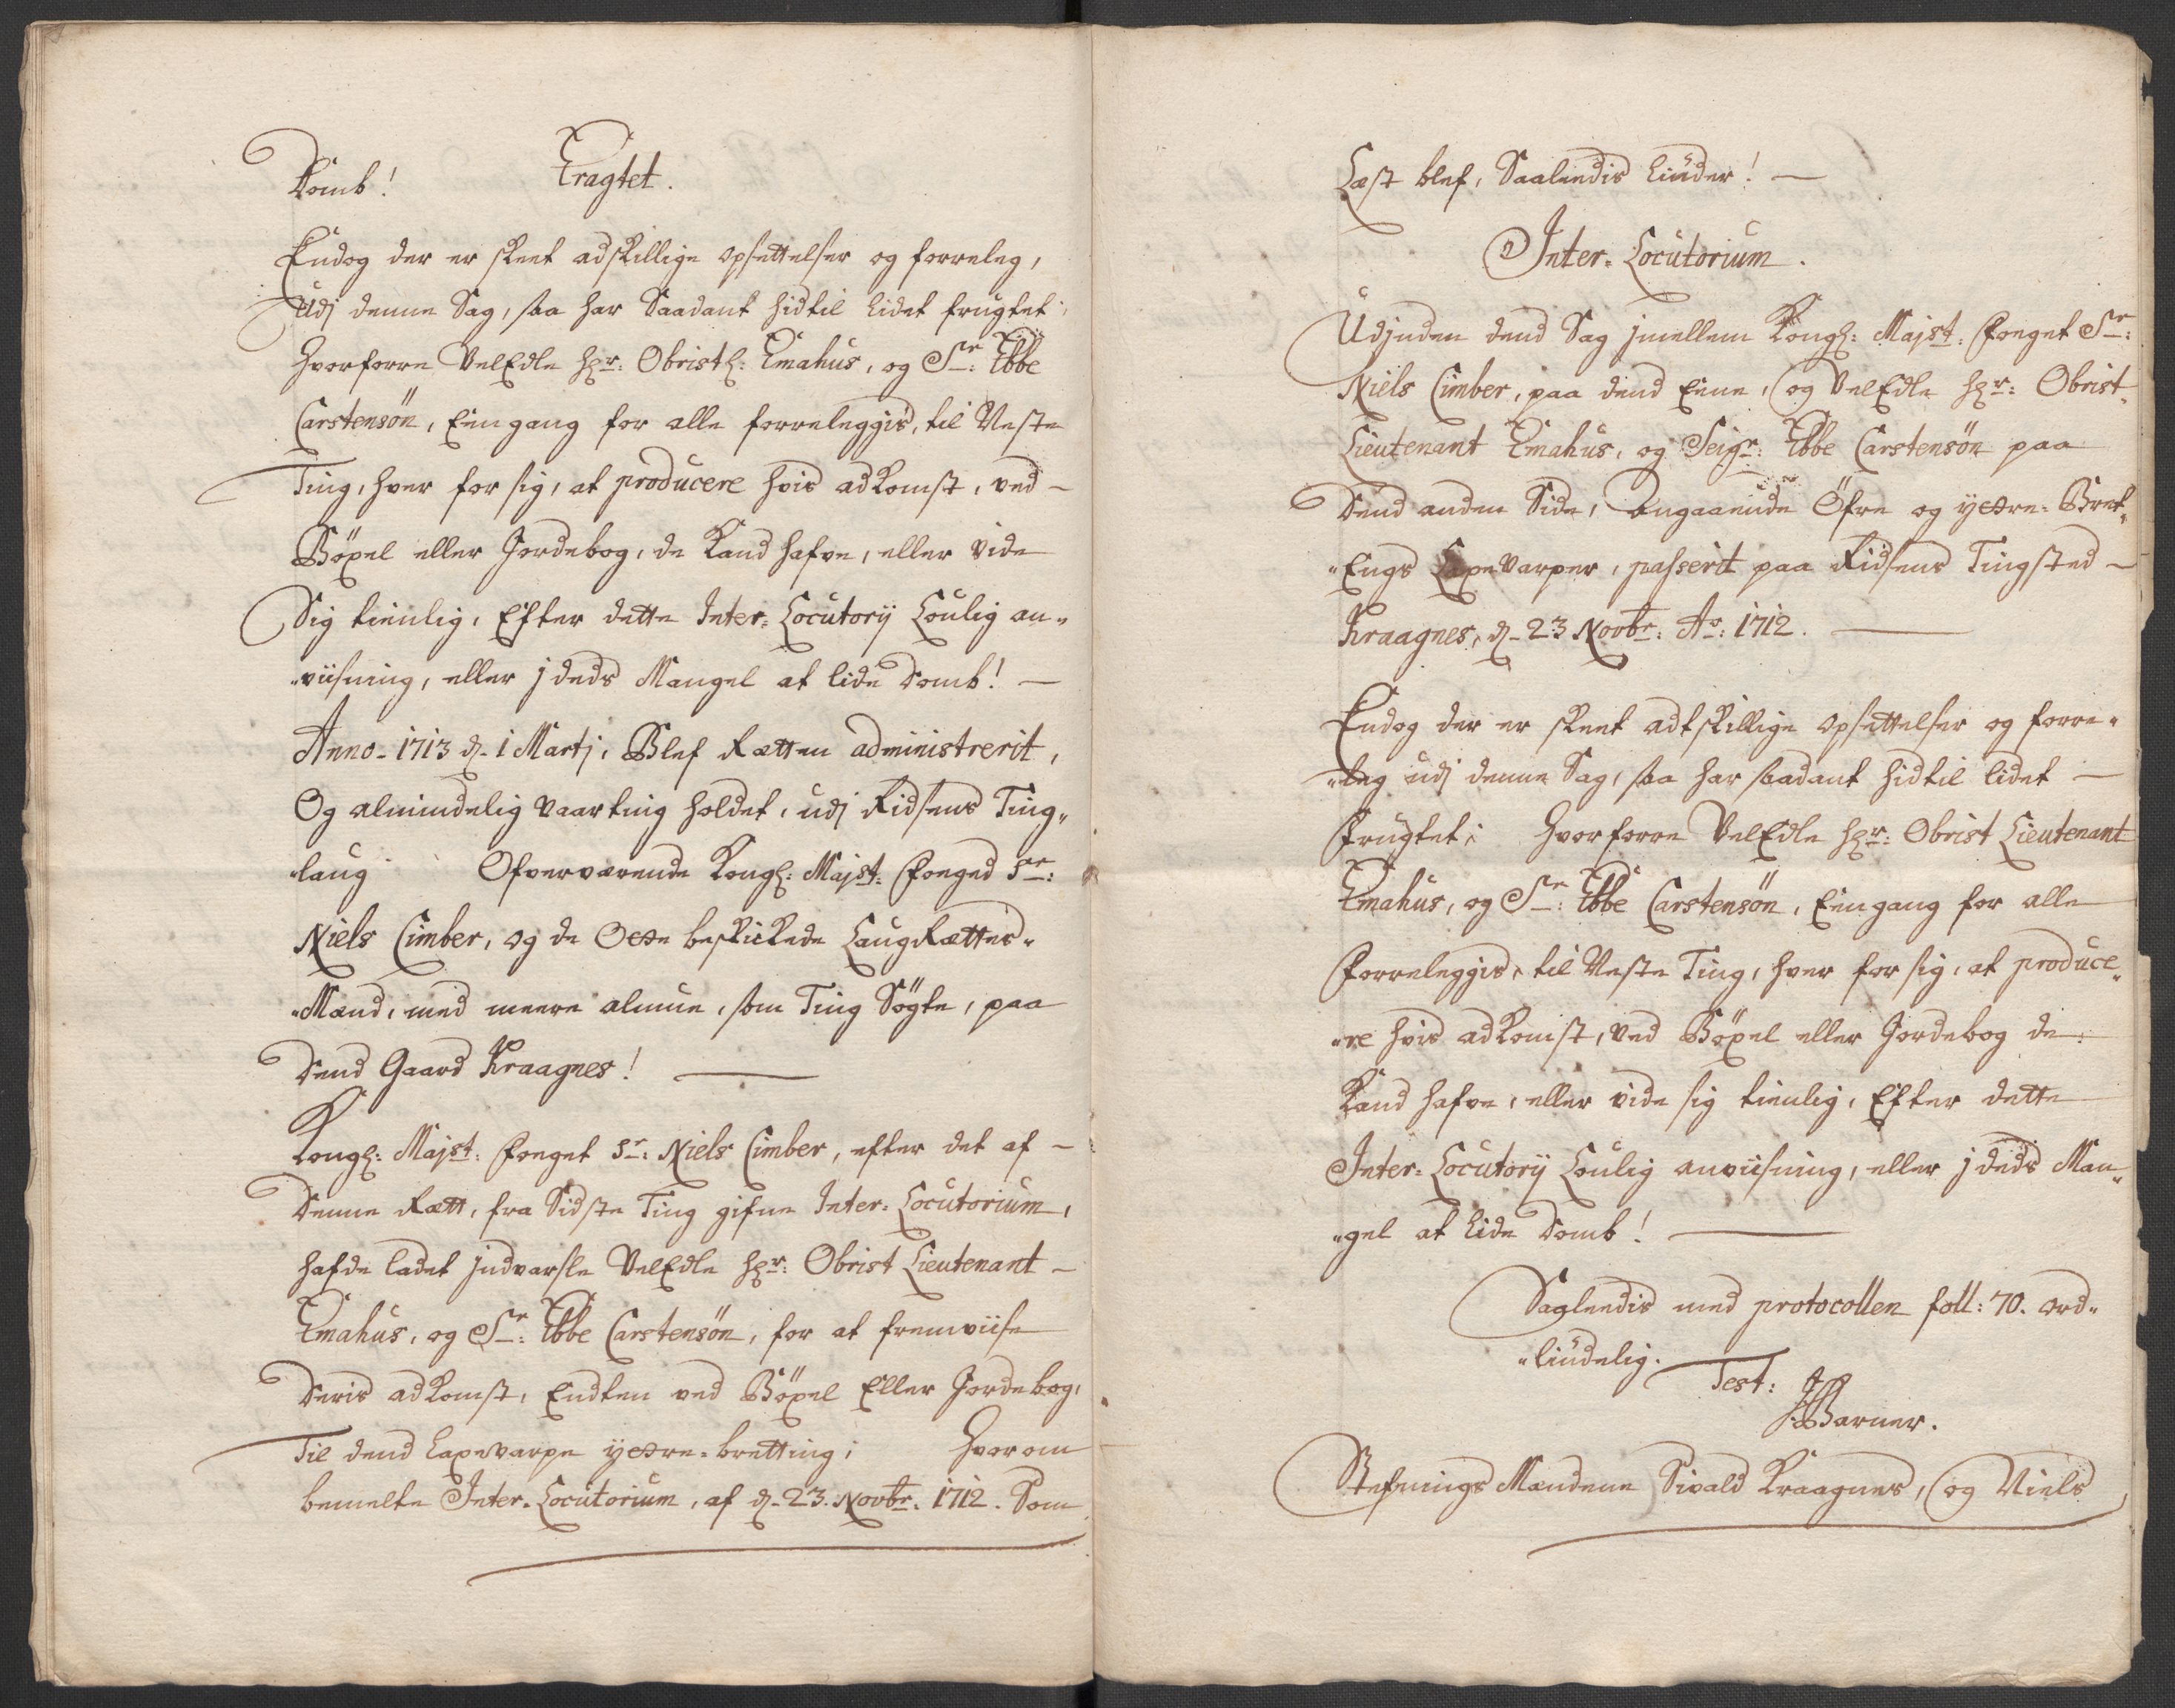 Domb! Eragtet.
Endog der er skeet adskillige opsettelser og forreleg,
Udj denne Sag, saa har Saadant hidtil lidet frugtet;
hvorforre VelEdle hr: Obristl: Emahus, og Sr: Ebbe
Carstensön, Eengang for alle forreleggis, til Neste
Ting, hver for sig, at producere hvis adkomst, ved
Böxel eller Jordebog, de kand hafve, eller vide
Sig tienlig, Efter dette Inter-Locutorij Loulig an-
-viisning, eller j deds Mangel at lide Domb!
Anno-1713 d. 1 Martj, Blef Rætten administrerit,
Og almindelig Vaarting holdet, udj Ridsens Ting-
-laug Ofverværende Kongl: Majst: Foeged Sr:
Niels Cimber, og de Otte beskickede LaugRættes-
-Mænd, med meere almue, som Ting Sögte, paa
Dend Gaard Kraagnes!
Kongl: Majst: Foeget Sr: Niels Cimber, efter det af
Denne Rætt, fra Sidste Ting gifne Inter-Locutorium,
hafde ladet jndvarsle VelEdle hr: Obrist Lieutenant
Emahus, og Sr: Ebbe Carstensön, for at fremviise
Deris adkomst, Endten ved Böxel Eller Jordebog,
Til dend Laxevarpe yttre-bretting; hvorom
bemelte Inter-Locutorium, af d. 23. Novbr. 1712. Som
Læst blef, Saaledis Liuder!
Inter-Locutorium.
Udjnden dend Sag jmellem Kongl: Majst: Foeget Sr:
Niels Cimber, paa dend Eene, og VelEdle hr: Obrist-
Lieutenant Emahus, og Seigr: Ebbe Carstensön paa
Dend anden Side, Angaaende Öfre og yttre-Bret-
-Engs LaxeVarper, passerit paa Ridsens Tingsted
Kraagnes, d. 23 Novbr: Ao: 1712.
Endog der er skeet adtskillige opsettelser og forre-
-leg udj denne Sag, saa har saadant hidtil lidet
frugtet; hvorforre VelEdle hr: Obrist Lieutenant
Emahus, og Sr: Ebbe Carstensön, Eengang for alle
forreleggis, til Neste Ting, hver for sig, at produce-
-re hvis adkomst, ved Böxel eller Jordebog de
Kand hafve, eller vide sig tienlig, Efter dette
Inter-Locutorij Loulig anviisning, eller j deds Man-
-gel at lide Domb!
Sagleedis med protocollen foll: 70. ord-
-liudelig.
Test:
Barner.
Stefnings Mændene Sivald Kraagnes, og Niels